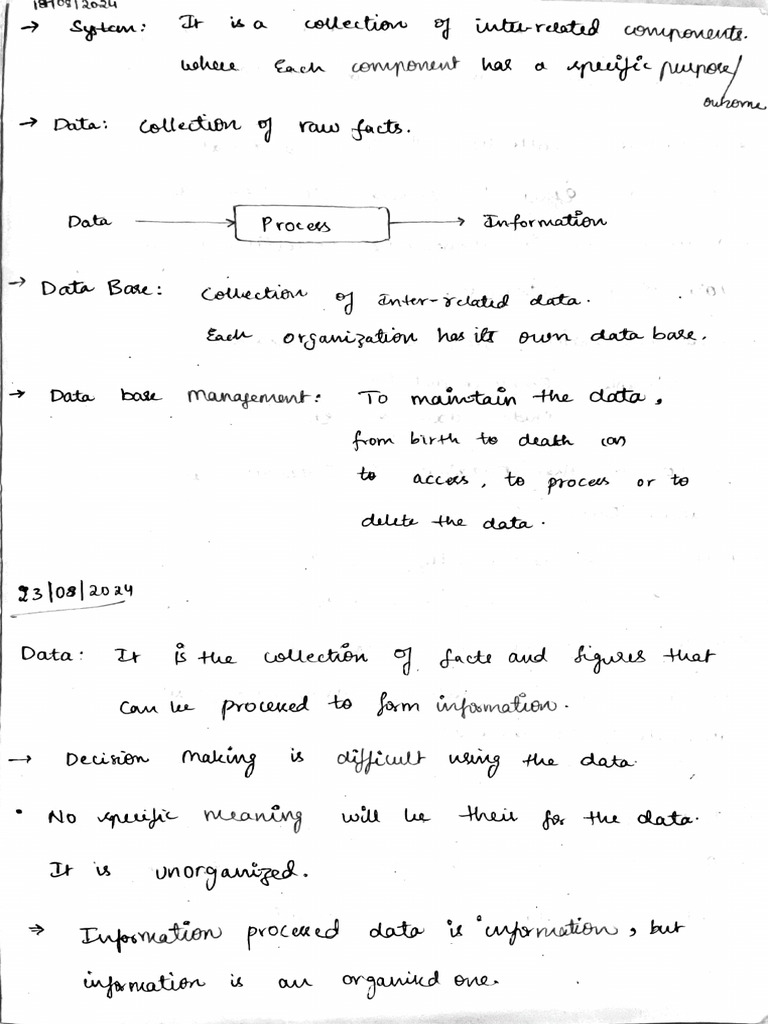 18/08/2024
→ System: It is a collection of inter-related components.
where Each component has a specific purpose/
outcome
→ Data: collection of raw facts.
Data → Process → Information
→ Data Base: Collection of Inter-related data.
Each organization has its own data base.
→ Data base Management: To maintain the data,
from birth to death (or)
to access, to process or to
delete the data.
23/08/2024
Data: It is the collection of facts and figures that
can be processed to form information.
→ Decision Making is difficult using the data.
• No specific meaning will be their for the data.
It is unorganized.
⇒ Information processed data is information, but
information is an organized one.